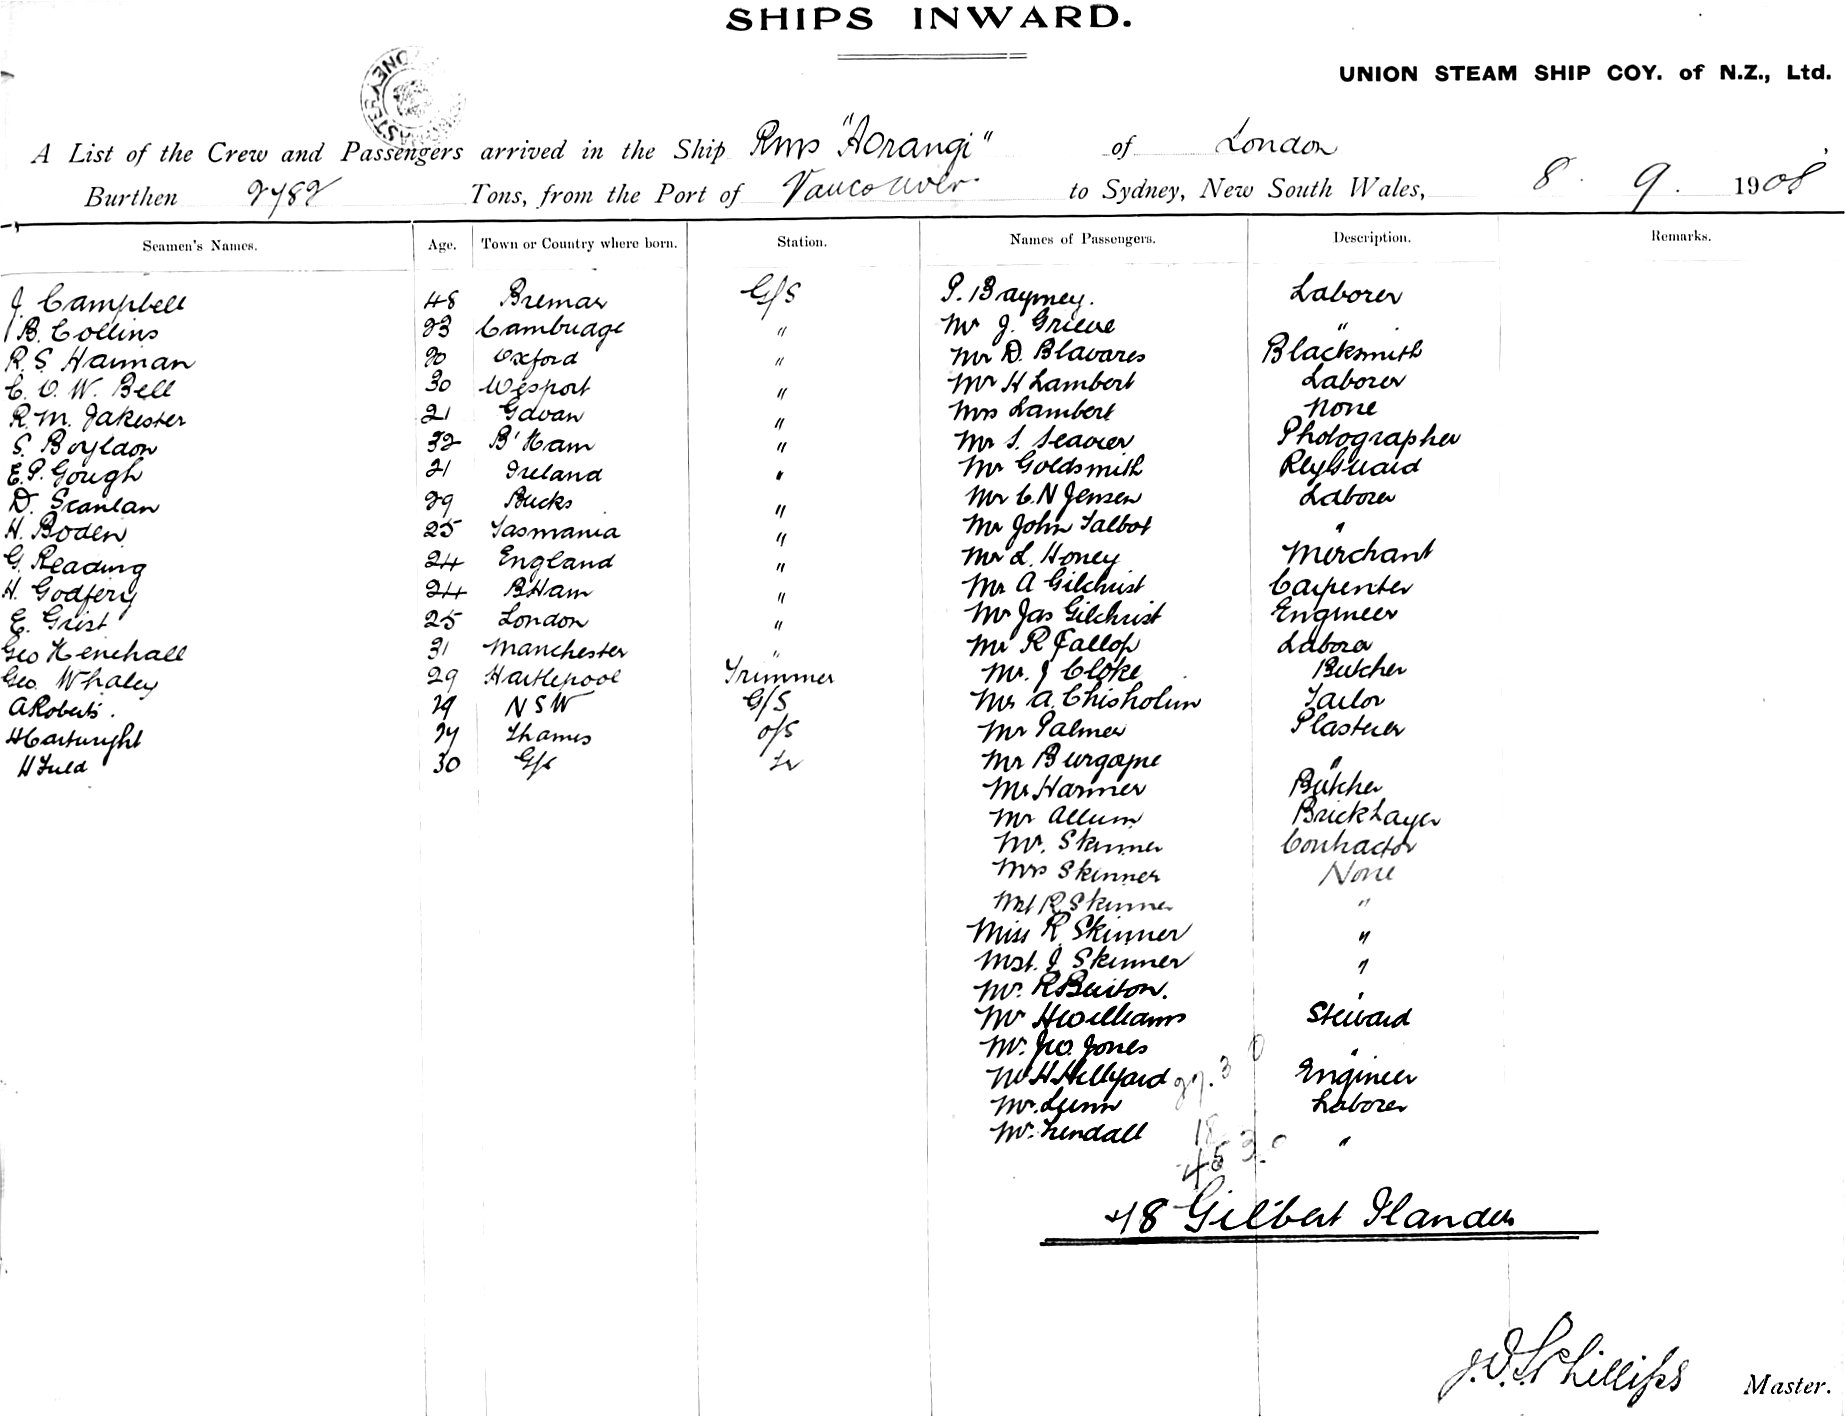 SHIPS INWARD.
UNION STEAM SHIP COY. of N.Z., Ltd.
A List of the Crew and Passengers arrived in the Ship Rms "Aorangi" of London
Burthen 2782 Tons, from the Port of Vancouver to Sydney, New South Wales, 8. 9. 1908
Seamen's Names. Age. Town or Country where born. Station. Names of Passengers. Description. Remarks.
J. Campbell 48 Bremar G/S P. Baymey. Laborer
B. Collins 23 Cambridge " Mr J. Grieve "
R. S. Harman 20 Oxford " Mr D. Blavares Blacksmith
C. O. W. Bell 30 Wesport " Mr H Lambert Laborer
R. M. Jakester 21 Govan " Mrs Lambert None
S. Boyldon 32 B'Ham " Mr S. Seavier Photographer
E. P. Gough 21 Ireland " Mr Goldsmith
D. Scanlan 29 Bucks " Mr C. N Jensen Laborer
H. Boden 25 Tasmania " Mr John Talbot "
G. Reading 24 England " Mr L. Honey Merchant
H. Godfery 24 BHam " Mr A Gilchrist Carpenter
E. Grist 25 London " Mr Jas Gilchrist Engineer
Geo Henehall 31 Manchester " Mr R Fallop Labore
Geo. Whaley 29 Hartlepool Trimmer Mr. J Cloke Butcher
A Roberts. 29 NSW G/S Mr A. Chisholm Tailor
H Cartwright 27 Thames o/S Mr Palmer Plasterer
H Fuld 30 Tr Mr Burgoyne "
Mr Harmer Butcher
Mr Allum BrickLayer
Mr. Skinner Contractor
Mrs Skinner None
Mst R Skinner "
Miss R. Skinner "
Mst. J Skinner "
Mr. R Buiton. "
Mr H Williams Steward
Mr. Jno. Jones "
Mr H Hillyard 27. 3 0 Engineer
Mr. Lunn Laborer
Mr. Kendall 18 "
45 3. 0
48 Gilbert Ilanders
J. D. S. Phillips Master.